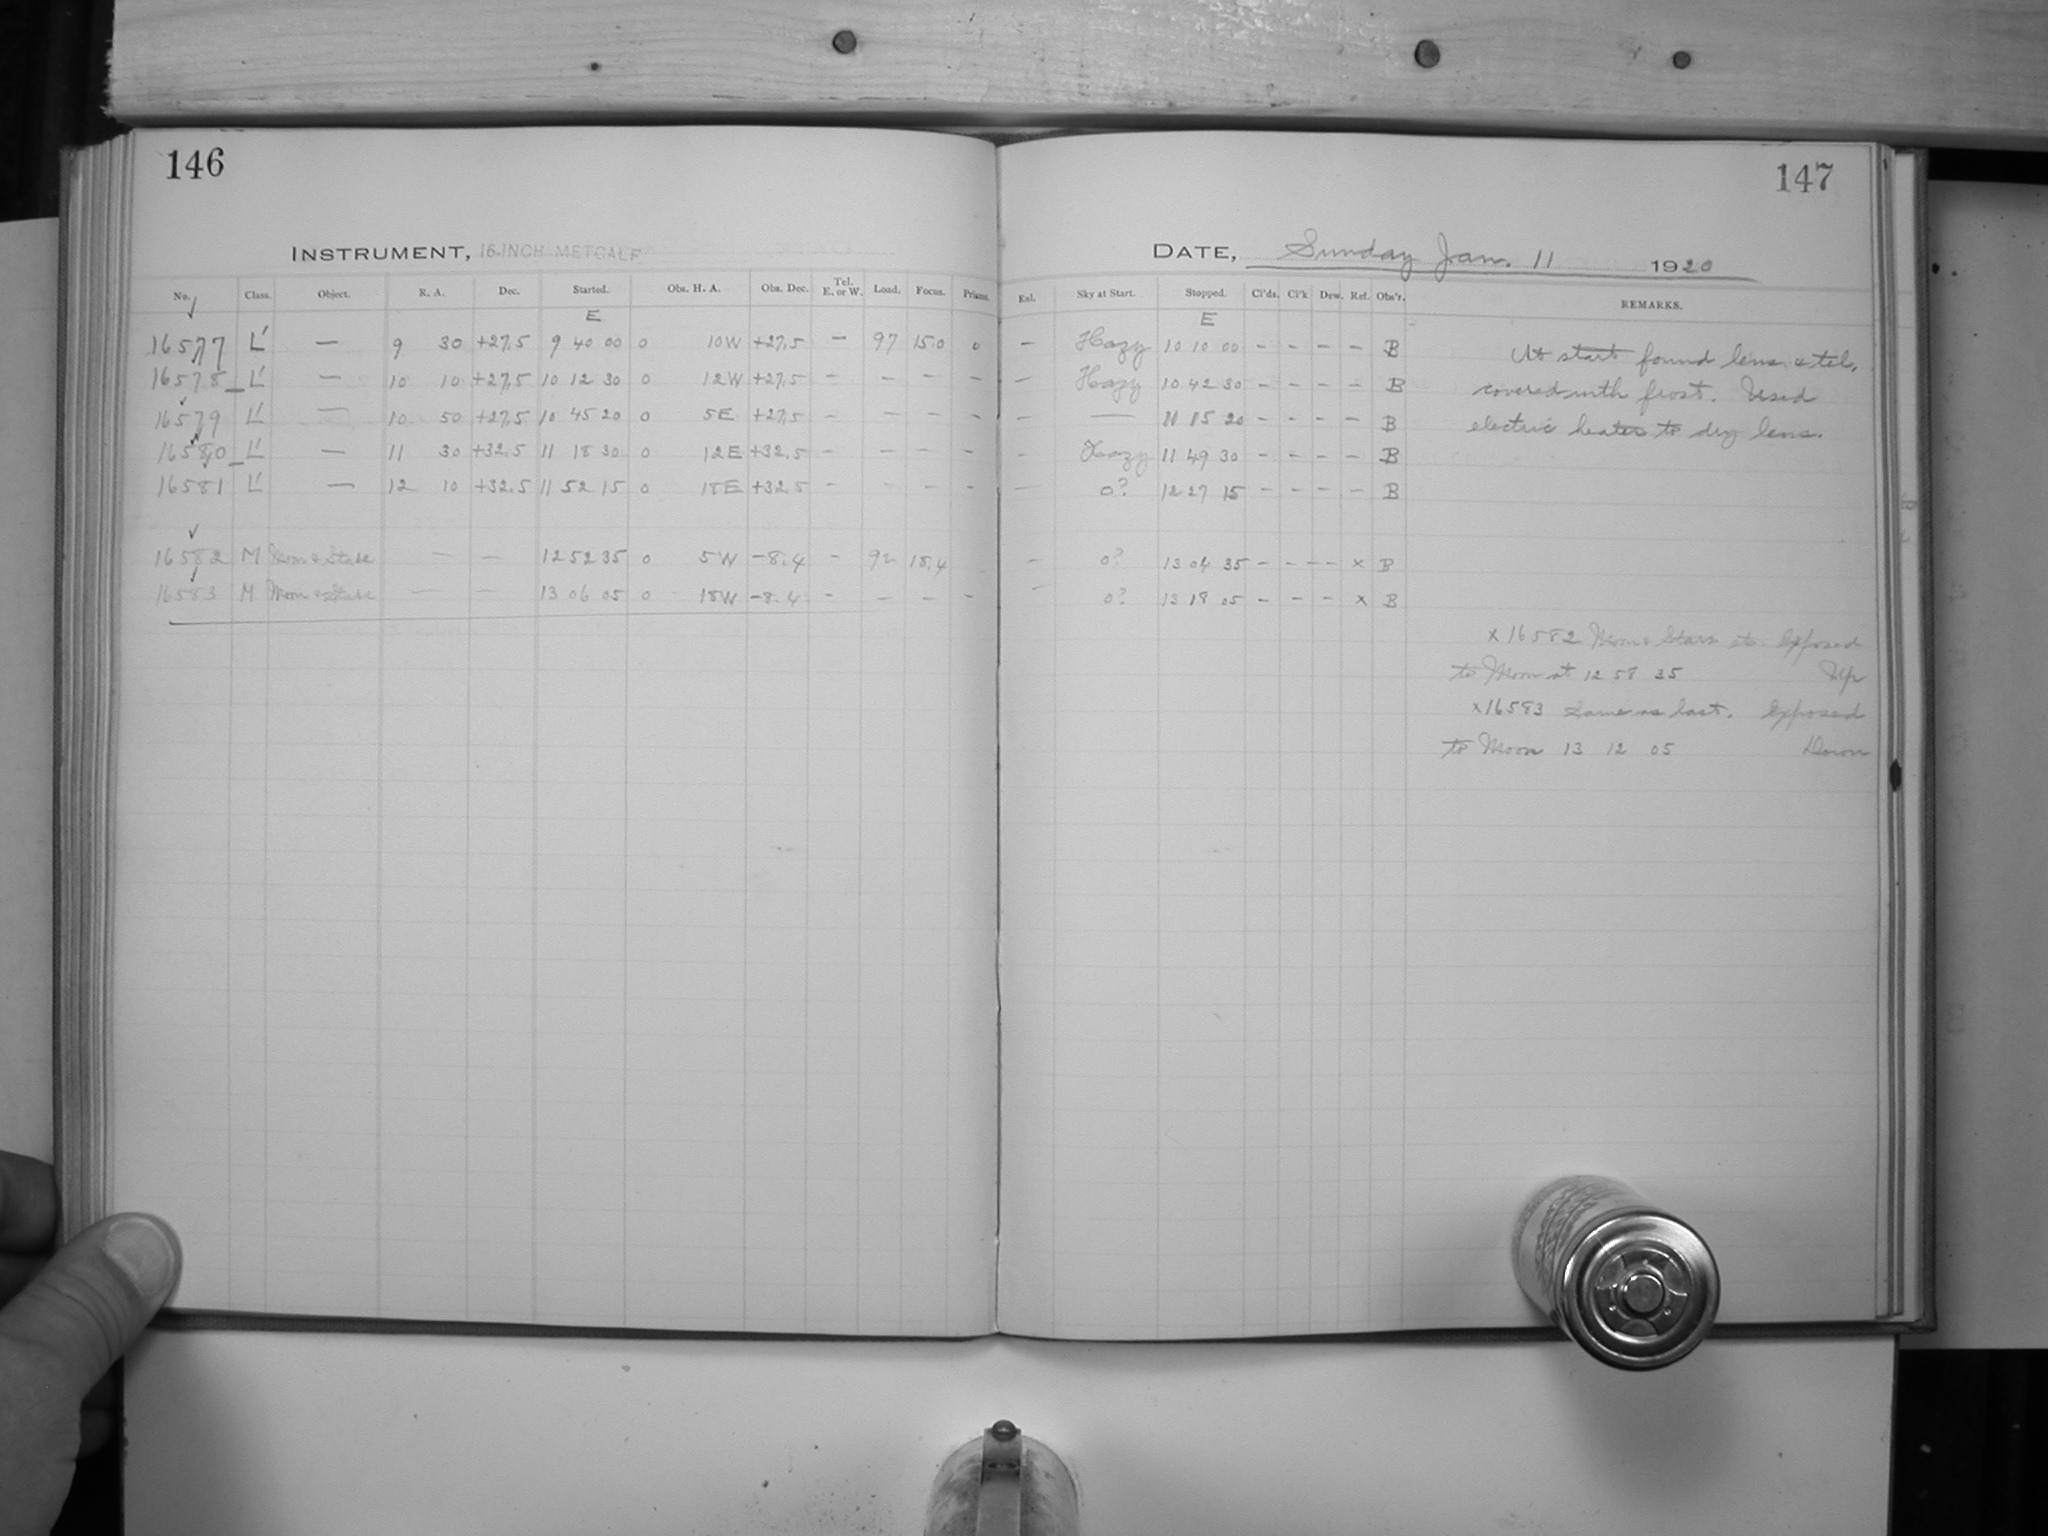 146
147
INSTRUMENT, 16-INCH METCALF
DATE, Sunday Jan. 11 1920
No. Class. Object. R. A. Dec. Started. Obs. H. A. Obs. Dec. Tel. E. or W. Load. Focus. Prisms. Exl. Sky at Start. Stopped. Cl'ds. Cl'k Dew. Ref. Obs'r. REMARKS.
E E
16577 L' — 9 30 +27.5 9 40 00 0 10W +27.5 — 97 15.0 0 — Hazy 10 10 00 — — — — B
16578 L' — 10 10 +27.5 10 12 30 0 12W +27.5 — — — — — Hazy 10 42 30 — — — — B
16579 L' — 10 50 +27.5 10 45 20 0 5E +27.5 — — — — — — 11 15 20 — — — — B
16580 L' — 11 30 +32.5 11 18 30 0 12E +32.5 — — — — — Hazy 11 49 30 — — — — B
16581 L' — 12 10 +32.5 11 52 15 0 18E +32.5 — — — — — 0? 12 27 15 — — — — B
16582 M Moon & Stars — — 12 52 35 0 5W -8.4 — 92 15.4 — 0? 13 04 35 — — — x B
16583 M Moon & Stars — — 13 06 05 0 18W -8.4 — — — — — 0? 13 18 05 — — — x B
At start found lens & tel.
covered with frost. Used
electric heater to dry lens.
x 16582 Moon & Stars etc. Exposed
to Moon at 12 58 35 Up
x 16583 Same as last. Exposed
to Moon 13 12 05 Down